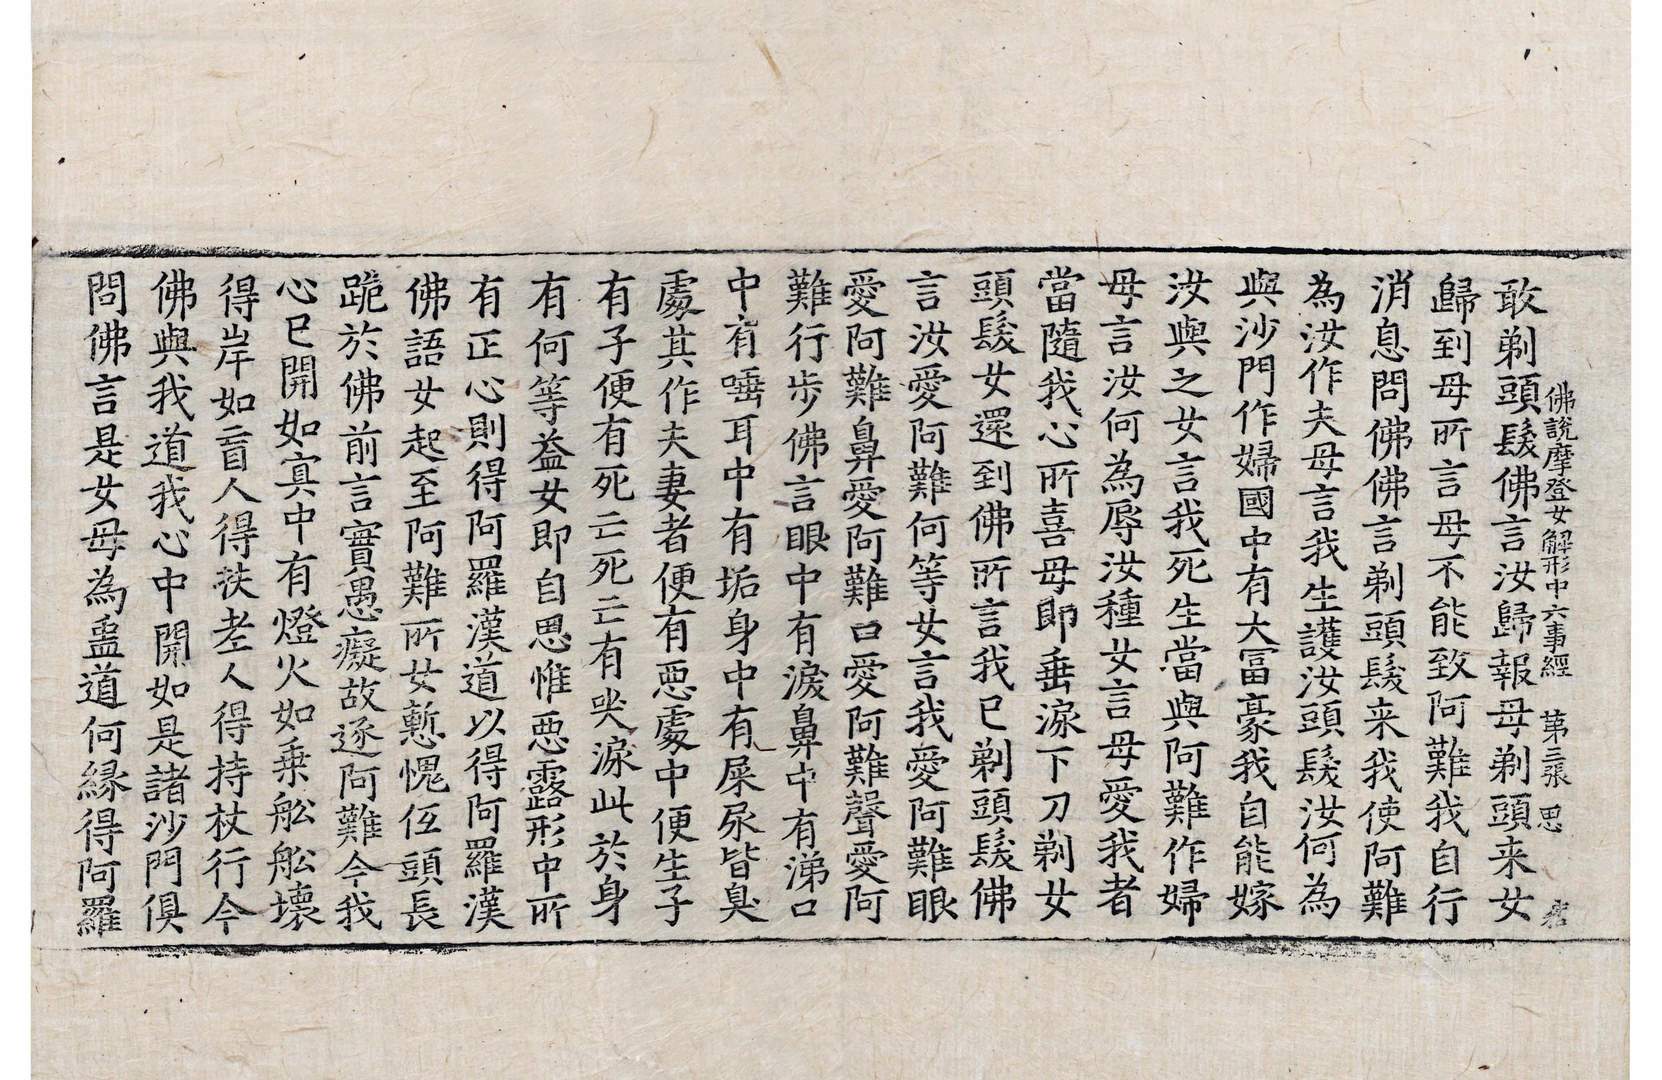 佛說摩登女解形中六事經 第三張 思
敢剃頭髮佛言汝歸報母剃頭来女
歸到母所言母不能致阿難我自行
消息問佛佛言剃頭髮来我使阿難
為汝作夫母言我生護汝頭髮汝何為
與沙門作婦國中有大冨豪我自能嫁
汝與之女言我死生當與阿難作婦
母言汝何為辱汝種女言母愛我者
當隨我心所喜母即垂淚下刀剃女
頭髮女還到佛所言我已剃頭髮佛
言汝愛阿難何等女言我愛阿難眼
愛阿難鼻愛阿難口愛阿難聲愛阿
難行步佛言眼中有淚鼻中有涕口
中有唾耳中有垢身中有屎尿皆臭
處其作夫妻者便有惡處中便生子
有子便有死亡死亡有哭淚此於身
有何等益女即自思惟惡露形中所
有正心則得阿羅漢道以得阿羅漢
佛語女起至阿難所女慙愧低頭長
跪於佛前言實愚癡故逐阿難今我
心已開如冥中有燈火如乗舩舩壞
得岸如盲人得扶老人得持杖行今
佛與我道我心中開如是諸沙門俱
問佛言是女母為蠱道何縁得阿羅